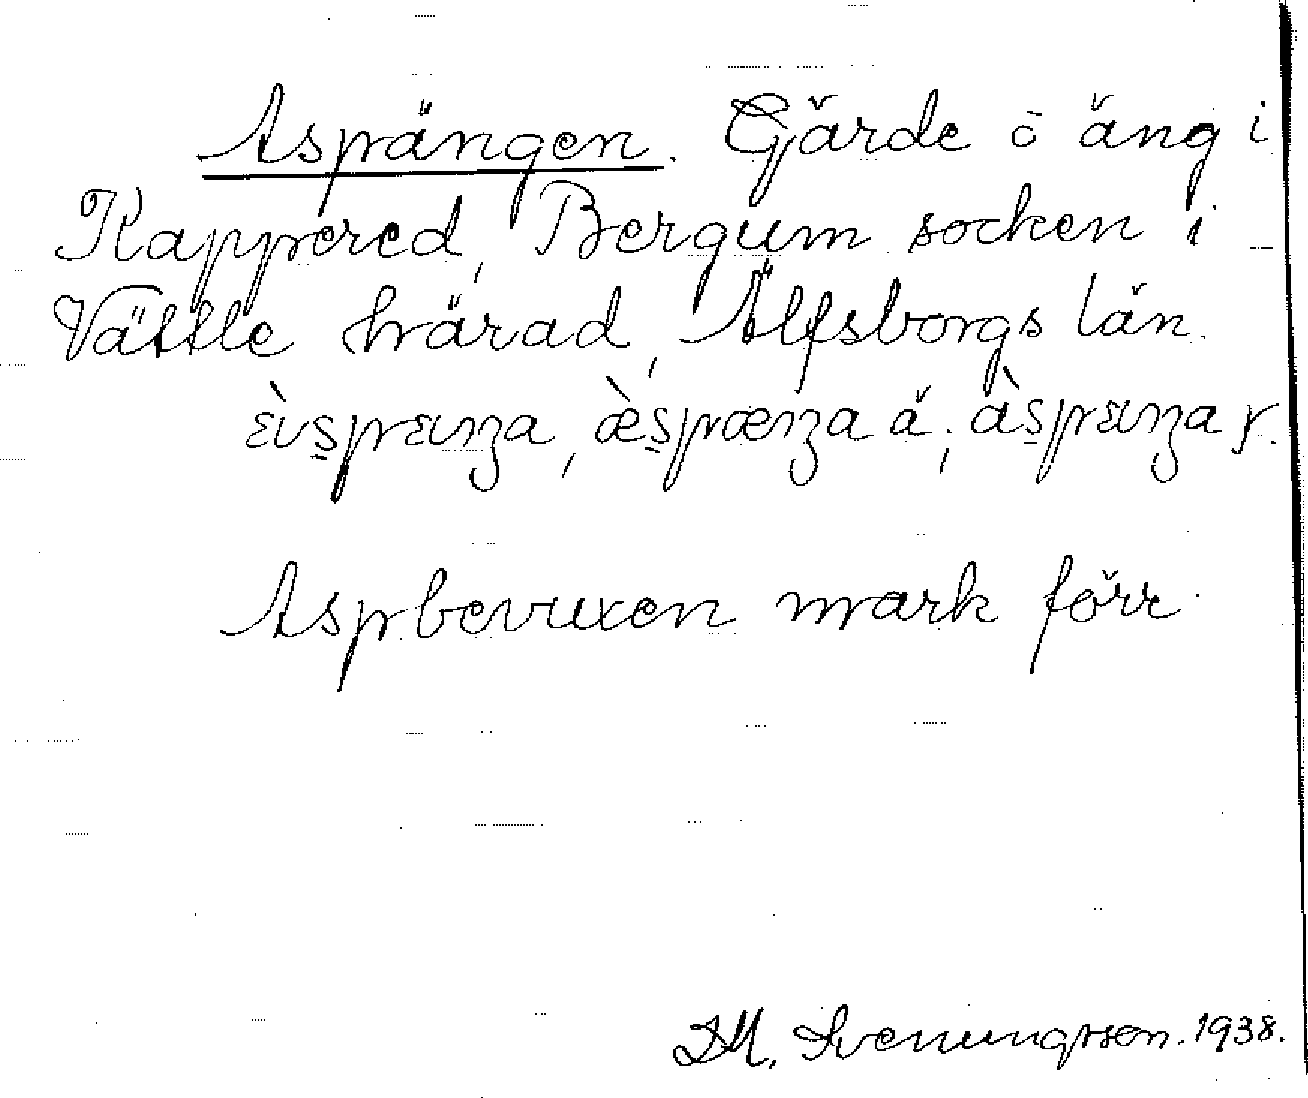 Aspängen. Gärde o äng i
Kappered, Bergum socken i
Vättle härad, Älfsborgs län.
æ̀s̱pænga ä.;
Aspbevuxen mark förr.
D.M. Svenungsson. 1938.